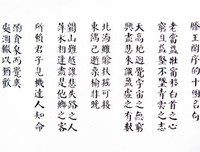 滕王阁序的十個名句
老當益壯甯移白首之心
窮且益堅不墜青雲之志
天高地迥覺宇宙之無窮
興盡悲來識盈虛之有數
北海雖賒扶搖可接
東隅已逝桑榆非晚
關山難越誰悲失路之人
萍水相逢盡是他鄉之客
所賴君子見機達人知命
酌貪泉而覺爽
處涸轍以猶歡